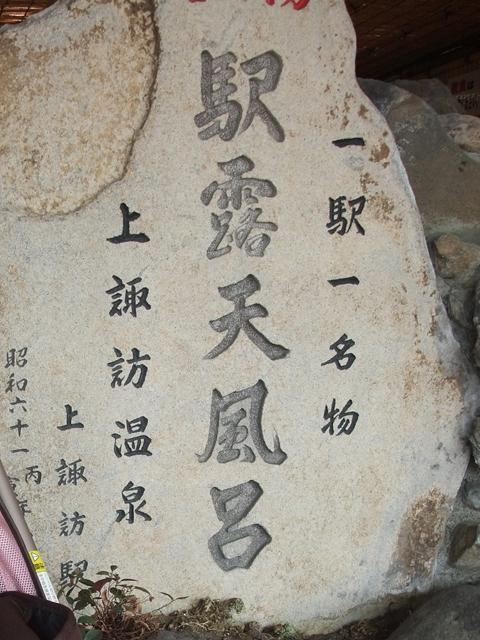 一駅一名物
駅露天風呂
上諏訪温泉
上諏訪駅
昭和六十一丙